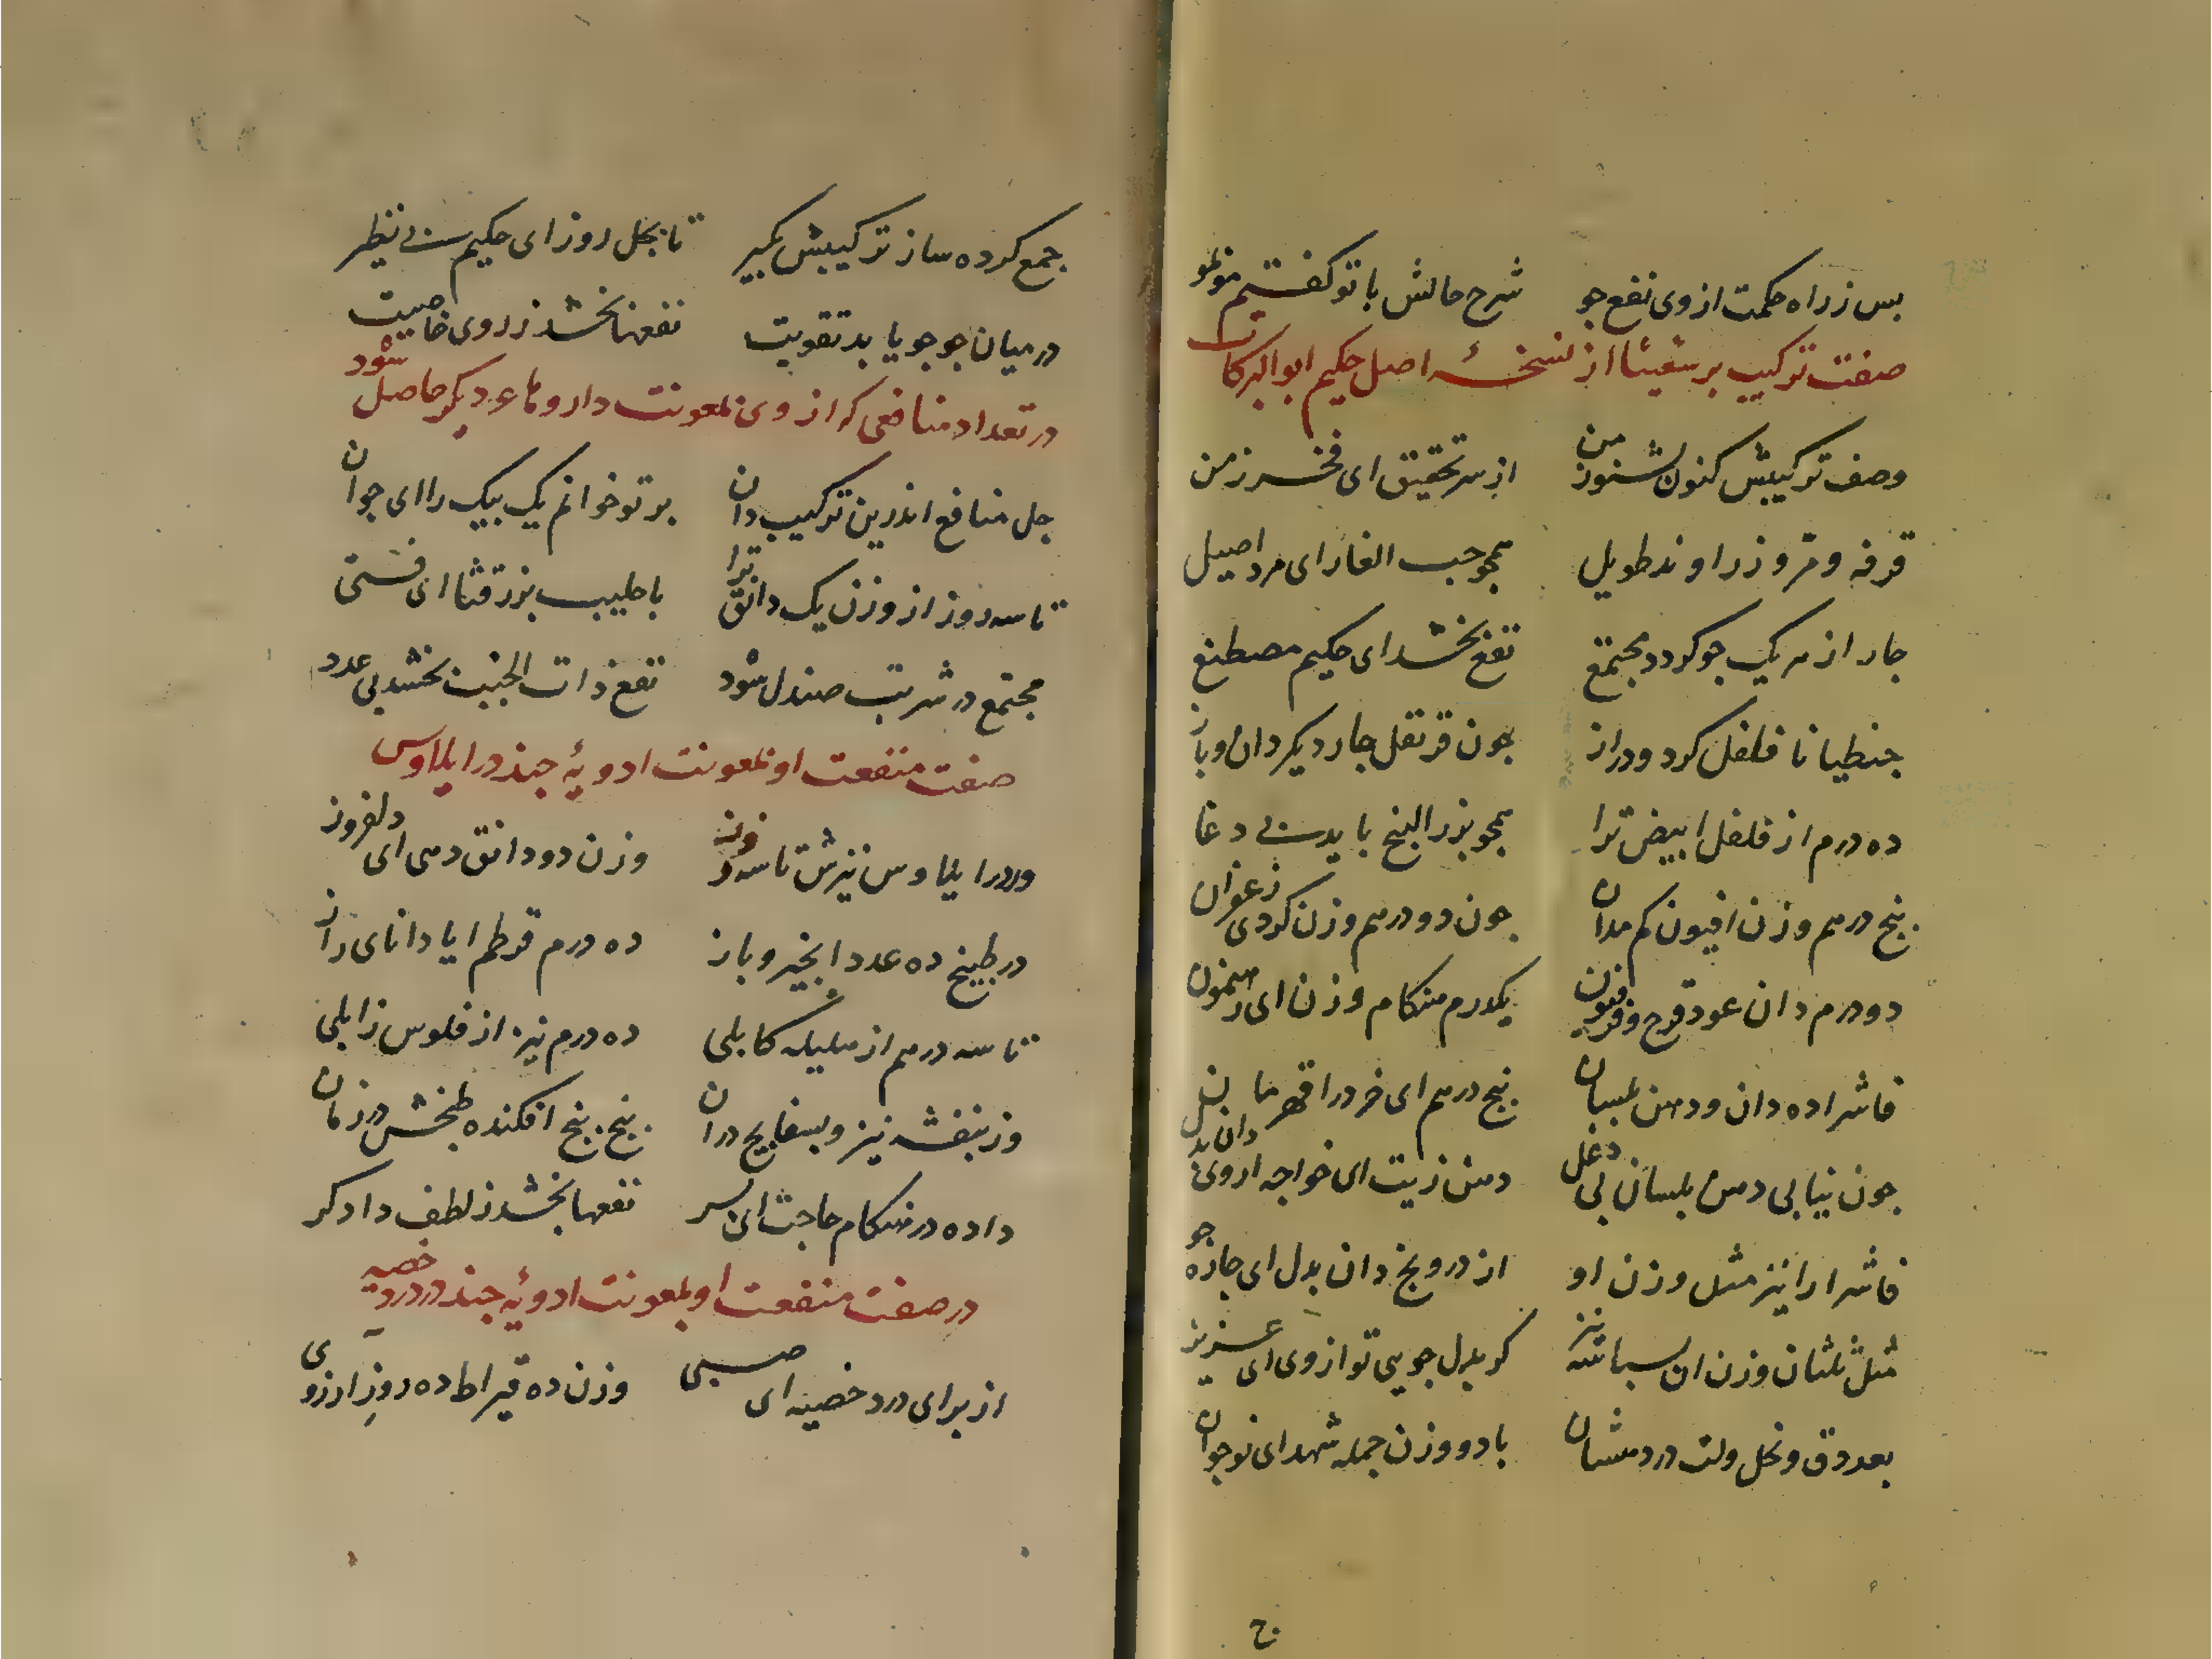 بس ز راه حکمت از وی نفع جو شرح حالش با تو گفتیم موبمو
صفت ترکیب برشعیثا از نسخهٔ اصل حکیم ابو البرکات
وصف ترکیبش کنون بشنو ز من از سر تحقیق ای فخر زمن
قرفه و مر و زراوند طویل همجو حب الغار ای مرد اصیل
جار از هر یک جو کردد مجتمع نفع بخشد ای حکیم مصطنع
جنطیانا فلفل کرد و دراز جون قرنفل جار دیکر دان و باز
ده درم از فلفل ابیض ترا همجو بزر البنج باید بی دغا
بنج درهم وزن افیون کم مدان جون دو درهم وزن کردی زعفران
دو درم دان عود قرح و فرفیون یکدرم هنکام وزن ای رهنمون
فاشرا ده دان و دهن بلسان بنج درهم ای خرد را قهرمان
جون نیابی دهن بلسان بی دغل دهن زیت ای خواجه از وی دان بدل
فاشرا را نیز مثل وزن او از درونج دان بدل ای جاره جو
مثل ثلثان وزن ان بسباسه نیز کر بدل جویی تو از وی ای عزیز
بعد دق و نخل ولت در دهنشان با دو وزن جمله شهد ای نوجوان
ج
جمع کرده ساز ترکیبش بکیر تا بجل روز ای حکیم بی نظیر
در میان جو جو یابد تقویت نفعها بخشد ز روی خاصیت
در تعداد منافعی که از وی بمعونت داروهاء دیکر حاصل شود
جل منافع اندرین ترکیب دان بر تو خوانم یک بیک را ای جوان
تا سه روز از وزن یک دانق ترا با حلیب بزر قثا ای فتی
مجتمع در شربت صندل شود نفع ذات الجنب بخشد بی عدد
صفت منفعت او بمعونت ادویهٔ جند در ایلاوس
ور در ایلاوس نیزش تا سه روز وزن دو دانق دهی ای دلفروز
در طبیخ ده عدد انجیر و باز ده درم قرطم ایا دانای راز
تا سه درهم از هلیله کابلی ده درم نیز از فلوس زابلی
وز بنفشه نیز و بسفایج در ان بنج بنج افکنده طبخش در زمان
داده در هنکام حاجت ای بسر نفعها بخشد ز لطف دادکر
در صفت منفعت او بمعونت ادویهٔ جند در درد خصیه
از برای درد خصیه ای صبی وزن ده قیراط ده روز ار زوی